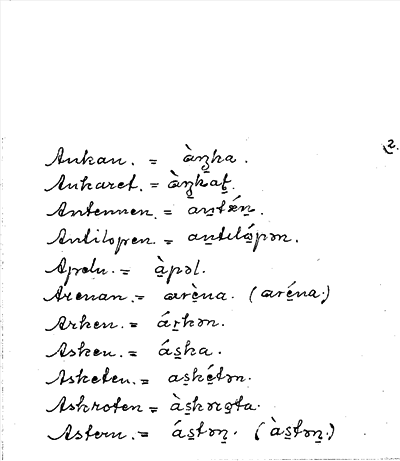 2.
Ankan. = àṉ̱ka.
Ankaret. = àṉ̱kaṯ.
Antennen. = aṉtǽṉ.
Antilopen = aṉtılǫ́pən.
Apeln. = à̱pəl.
Arenan = arèna. (aré̱na.)
Arken. = áṟkən.
Asken. = ás̱ka.
Asketen. = as̱ké̱tən.
Askroten = às̱krǫta.
Astern. = ás̱təṉ. (às̱təṉ.)